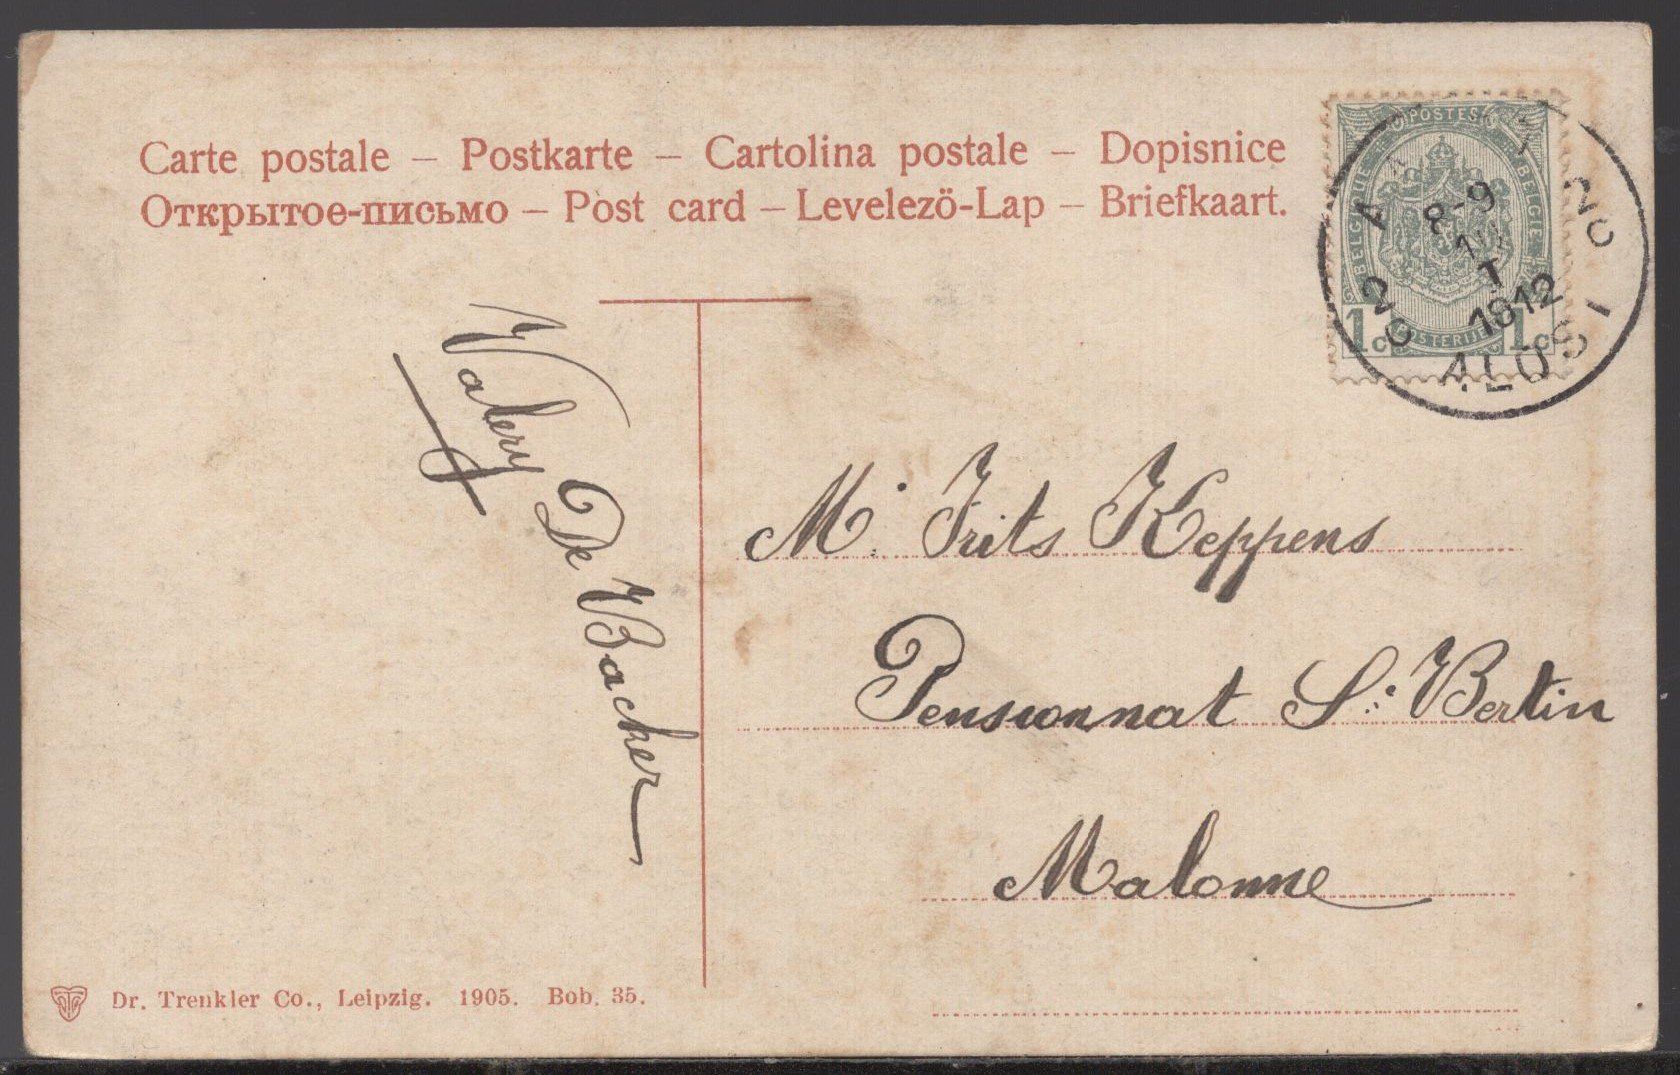 Carte postale – Postkarte – Cartolina postale – Dopisnice
Открытое-письмо – Post card – Levelezö-Lap – Briefkaart.
POSTES
BELGIQUE
BELGIE
POSTERIJEN
1c 1c
8-9
1812
ALOST
Valery De Backer
M. Frits Keppens
Pensionnat St. Bertin
Malonne
Dr. Trenkler Co., Leipzig. 1905. Bob. 35.